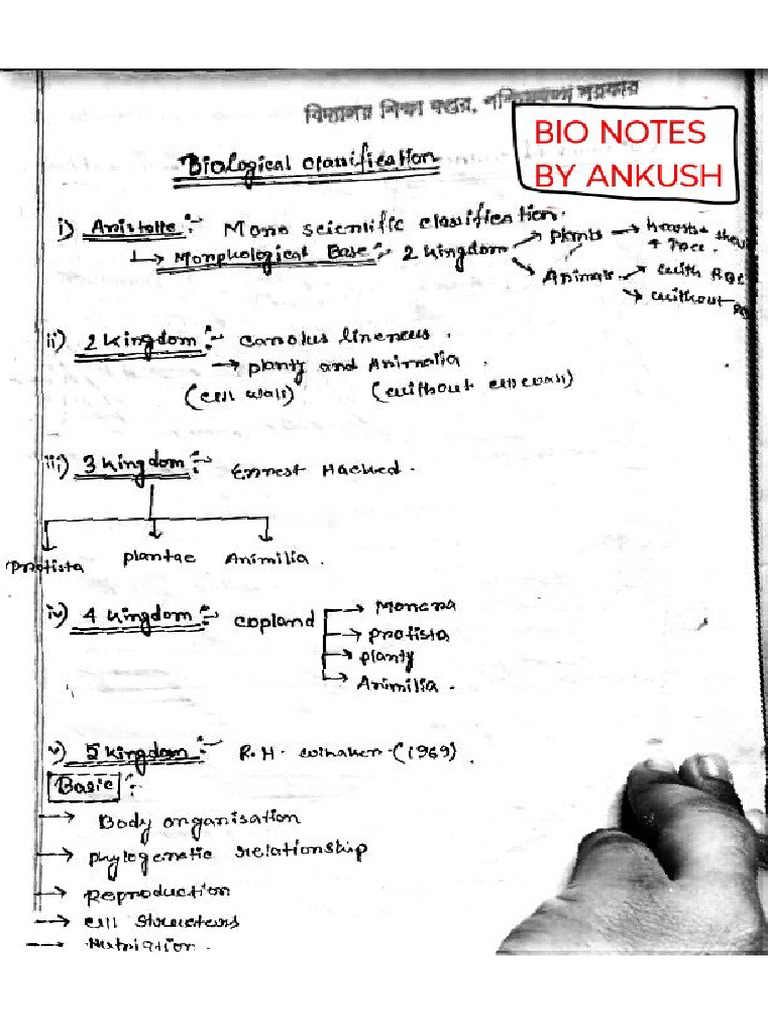 বিদ্যালয় শিক্ষা দপ্তর, পশ্চিমবঙ্গ সরকার
BIO NOTES
BY ANKUSH
Biological classification
i) Aristotle :- More scientific classification.
↳ Morphological Base :- 2 kingdom → plants →
+ Tree.
→ Animals → with RBC
→ without
ii) 2 kingdom :- Carolus lineneus.
→ planty and Animalia.
(cell wall) (without cell wall)
iii) 3 kingdom :- Ernest Hacked.
Protista plantae Animilia.
iv) 4 kingdom :- copland → Monera
→ protista
→ planty
→ Animilia.
v) 5 kingdom :- R.H. whitaker - (1969).
Basic :-
→ Body organisation
→ phylogenetic relationship
→ Reproduction
→ cell structers
→ Nutriation.